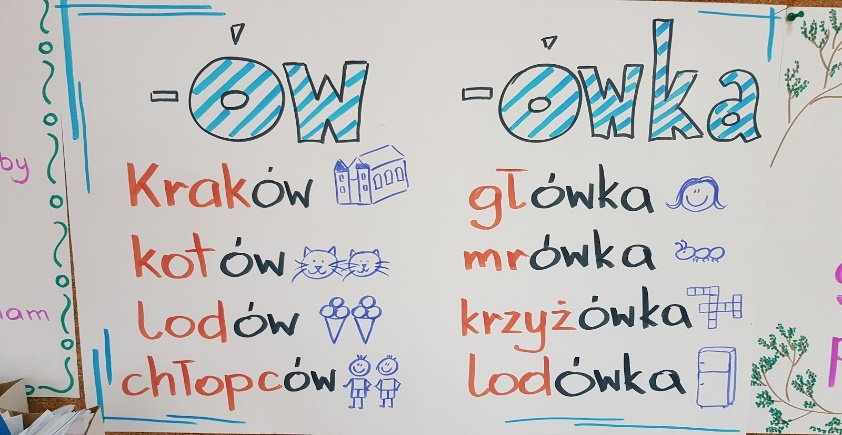 -ów
Kraków
kotów
lodów
chłopców
-ówka
główka
mrówka
krzyżówka
lodówka
by
am